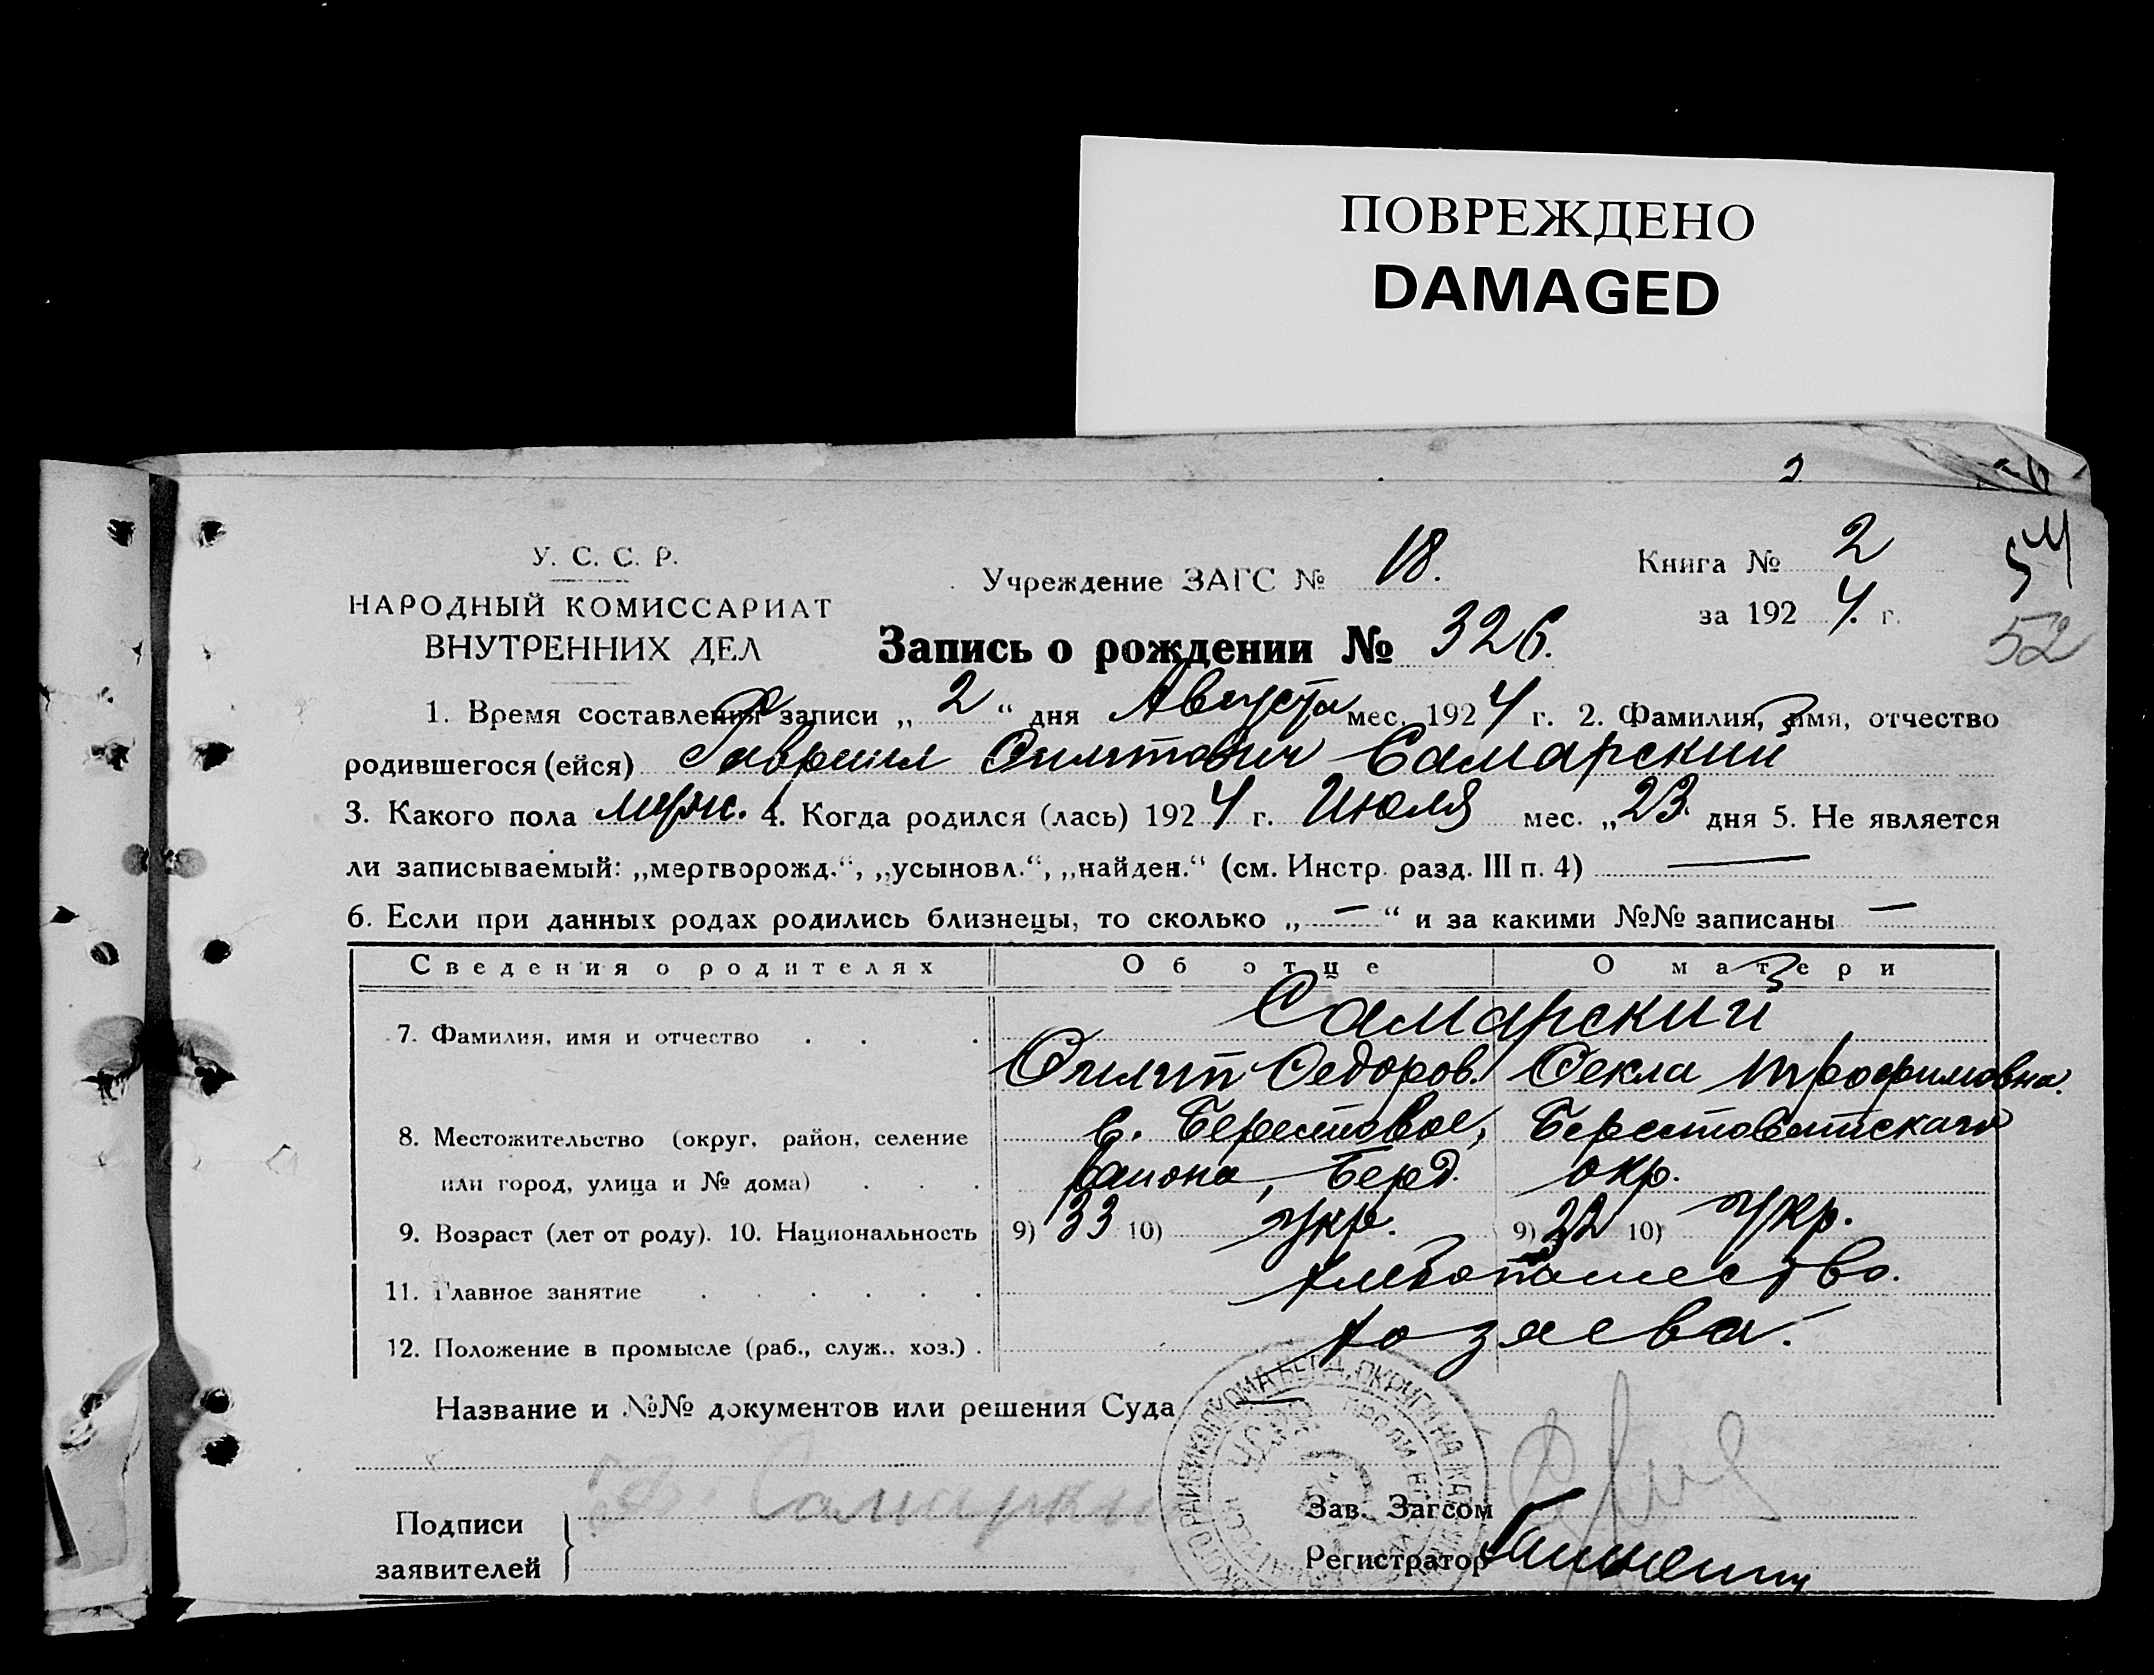 ПОВРЕЖДЕНО
DAMAGED
2
У. С. С. Р.
НАРОДНЫЙ КОМИССАРИАТ
ВНУТРЕННИХ ДЕЛ
Учреждение ЗАГС № 18.
Книга № 2
за 1924. г.
54
52
Запись о рождении № 326.
1. Время составления записи „ 2 “ дня Августа мес. 1924 г. 2. Фамилия, имя, отчество
родившегося (ейся) Гавриил Филиппович Самарский
3. Какого пола мужс. 4. Когда родился (лась) 1924 г. Июля мес. „23 дня 5. Не является
ли записываемый: „мертворожд.“, „усыновл.“, „найден.“ (см. Инстр. разд. III п. 4) —
6. Если при данных родах родились близнецы, то сколько „ — “ и за какими №№ записаны —
Сведения о родителях Об отце О матери
7. Фамилия, имя и отчество . . . Самарский
Филипп Федоров. Фекла Трофимовна.
8. Местожительство (округ, район, селение с. Берестовое, Берестоватскаго
или город, улица и № дома) . . . района, Берд. окр.
9. Возраст (лет от роду). 10. Национальность 9) 33 10) Укр. 9) 32 10) Укр.
11. Главное занятие . . . . . . хлебопашество.
12. Положение в промысле (раб., служ., хоз.) . хозяева.
Название и №№ документов или решения Суда —
Подписи
заявителей
Зав. Загсом
Регистратор